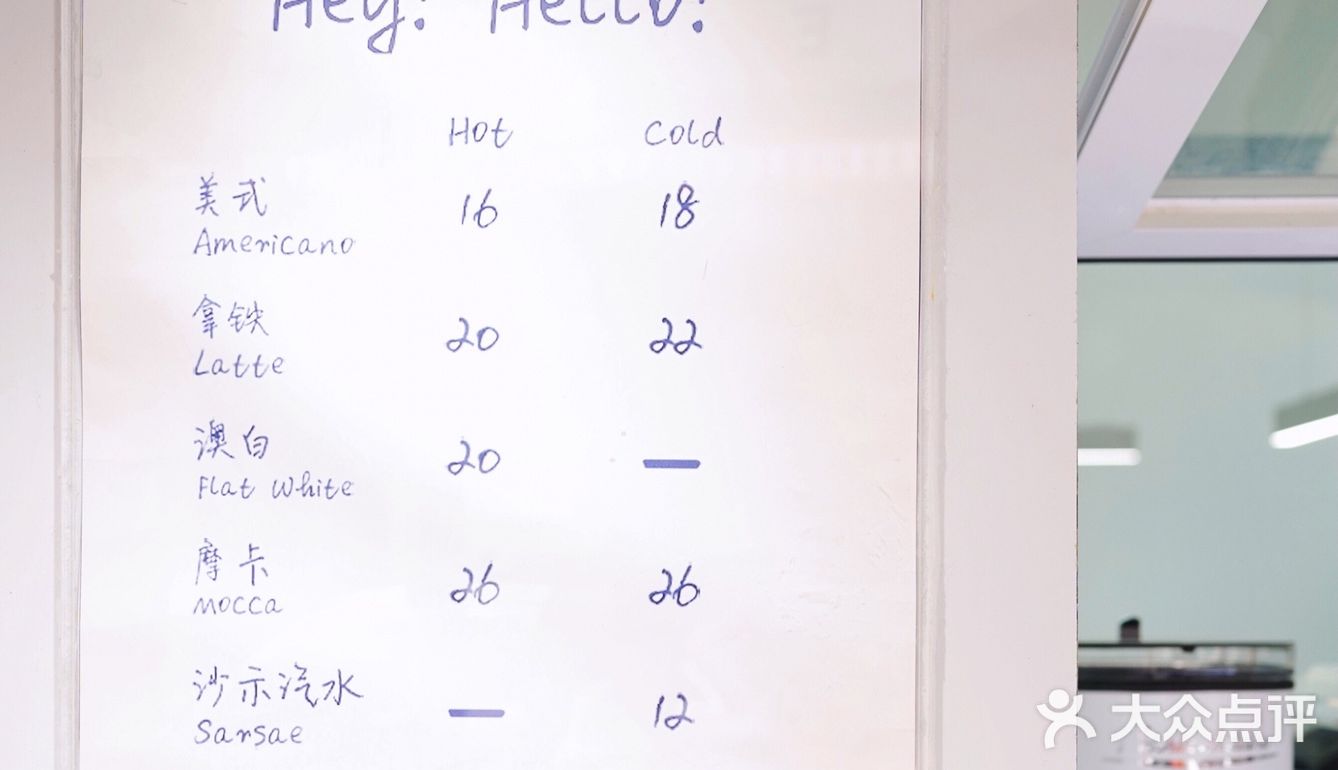 Hey! Hello!
Hot Cold
美式 16 18
Americano
拿铁 20 22
Latte
澳白 20 —
Flat White
摩卡 26 26
Mocca
沙示汽水 — 12
Sarsae
大众点评